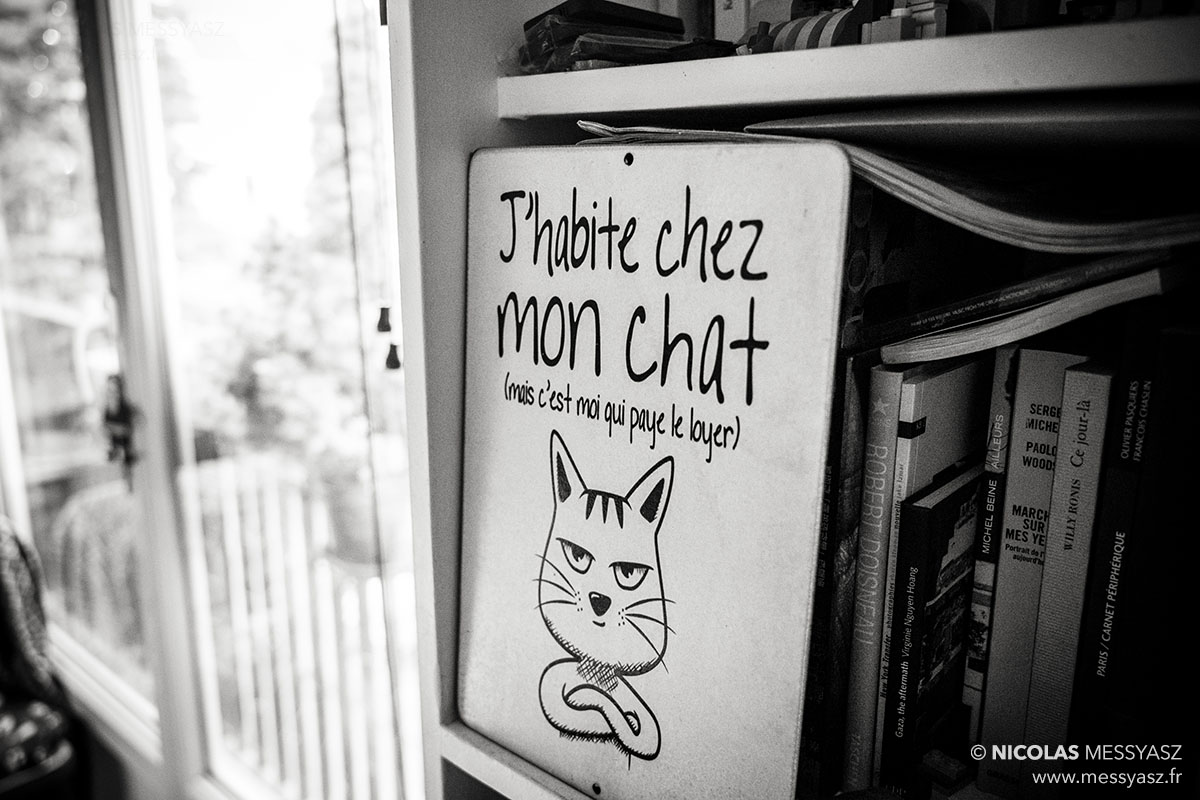 J'habite chez
mon chat
(mais c'est moi qui paye le loyer)
ROBERT DOISNEAU
Gaza, the aftermath Virginie Nguyen Hoang
MICHEL BEINE AILLEURS
SERGE
MICHE
PAOLO
WOODS
MARCH
SUR
MES YE
Portrait de l'I
aujourd'hu
WILLY RONIS Ce jour-là
PARIS / CARNET PÉRIPHÉRIQUE
OLIVIER PASQUIERS
FRANÇOIS CHASLIN
© NICOLAS MESSYASZ
www.messyasz.fr